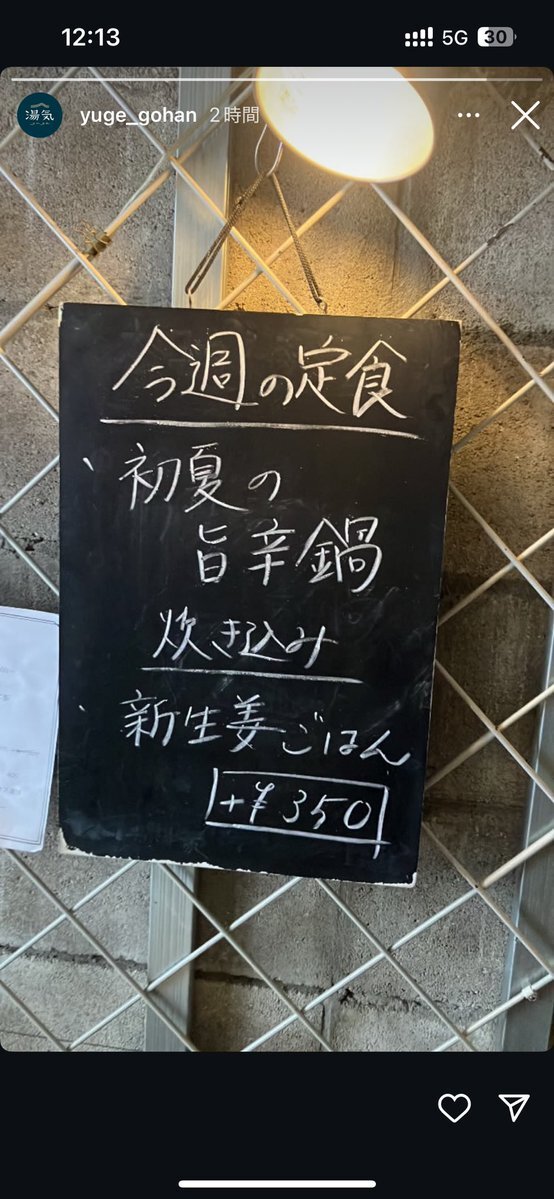 12:13
5G 30
湯気
yuge_gohan 2時間
今週の定食
初夏の
旨辛鍋
炊き込み
新生姜ごはん
+¥350